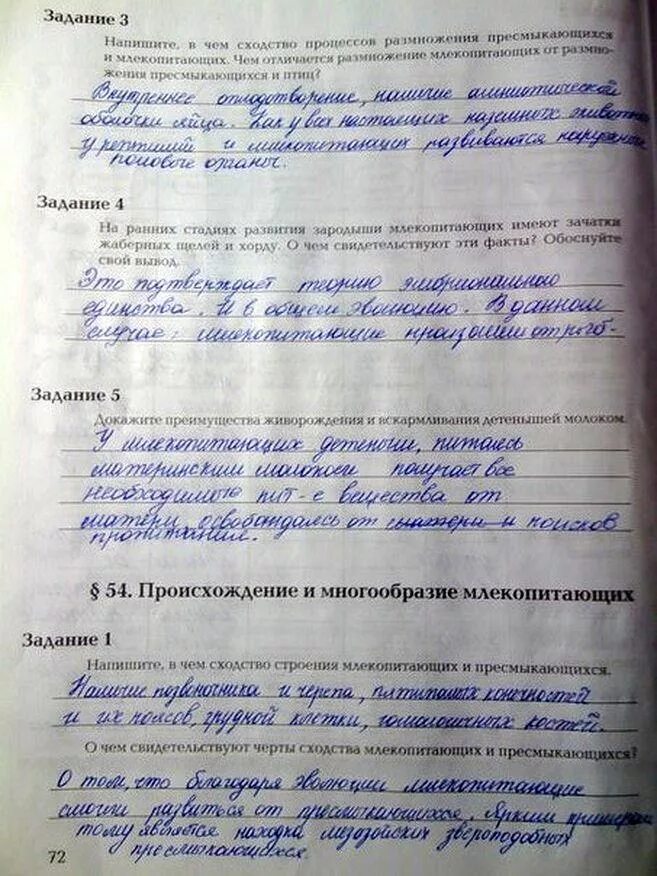 Задание 3
Напишите, в чем сходство процессов размножения пресмыкающихся
и млекопитающих. Чем отличается размножение млекопитающих от размно-
жения пресмыкающихся и птиц?
Внутреннее оплодотворение, наличие амниотической
оболочки яйца. Как у всех настоящих наземных животных
у рептилий и млекопитающих развиваются наружные
половые органы.
Задание 4
На ранних стадиях развития зародыши млекопитающих имеют зачатки
жаберных щелей и хорду. О чем свидетельствуют эти факты? Обоснуйте
свой вывод.
Это подтверждает теорию эмбрионального
единства. И в общем эволюцию. В данном
случае: млекопитающие произошли от
Задание 5
Докажите преимущества живорождения и вскармливания детенышей молоком.
У млекопитающих детеныши, питаясь
материнским молоком получает все
необходимые пит-е вещества от
матери, освобождаясь от матери и поисков
пропитания.
§ 54. Происхождение и многообразие млекопитающих
Задание 1
Напишите, в чем сходство строения млекопитающих и пресмыкающихся.
Наличие позвоночника и черепа, пятипалых конечностей
и их поясов, грудной клетки, гомологичных костей.
О чем свидетельствуют черты сходства млекопитающих и пресмыкающихся?
О том, что благодаря эволюции млекопитающие
смогли развиться от пресмыкающихся. Ярким примером
тому является находка мезозойских звероподобных
пресмыкающихся.
72